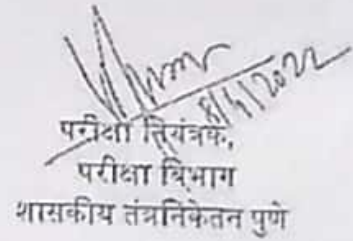 8/4/2022
परीक्षा नियंत्रक,
परीक्षा विभाग
शासकीय तंत्रनिकेतन पुणे